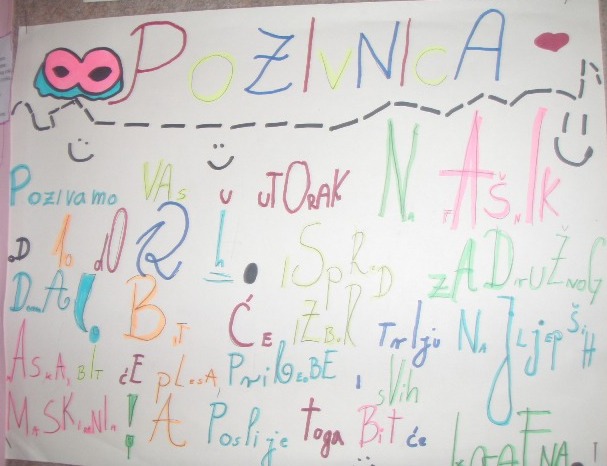 POZIVNICA
Pozivamo VAs u utORAK Na fAšnIk
OD 10 dO 12 h. ISpRED zADruŽnoG
DomA! BIT ĆE IZBoR TrIju NAJLjepŠIH
MAsKA, BIT ćE pLesA, PriREDBE I sVih
MASKIRANIh! A Poslije toga Bit će